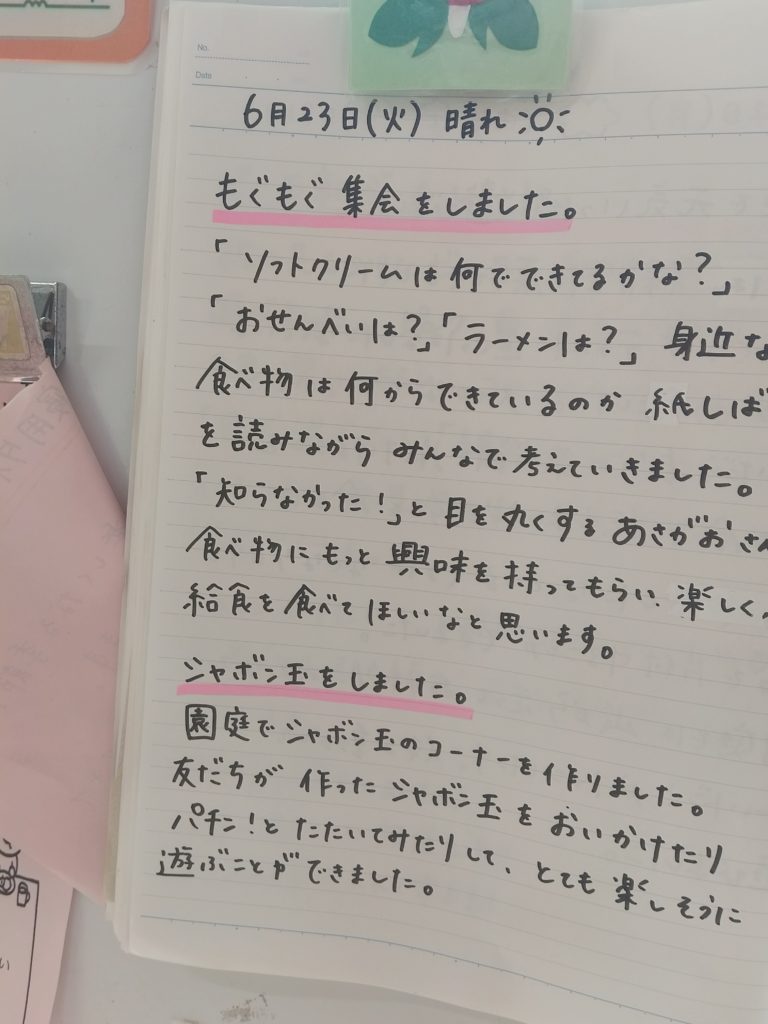 No.
Date
6月23日(火) 晴れ
もぐもぐ集会をしました。
「ソフトクリームは何でできてるかな?」
「おせんべいは?」「ラーメンは?」身近な
食べ物は何からできているのか 紙しば
を読みながら みんなで考えていきました。
「知らなかった!」と目を丸くするあさがおさん
食べ物にもっと興味を持ってもらい、楽しく
給食を食べてほしいなと思います。
シャボン玉をしました。
園庭でシャボン玉のコーナーを作りました。
友だちが作ったシャボン玉をおいかけたり
パチン!とたたいてみたりして、とても楽しそうに
遊ぶことができました。